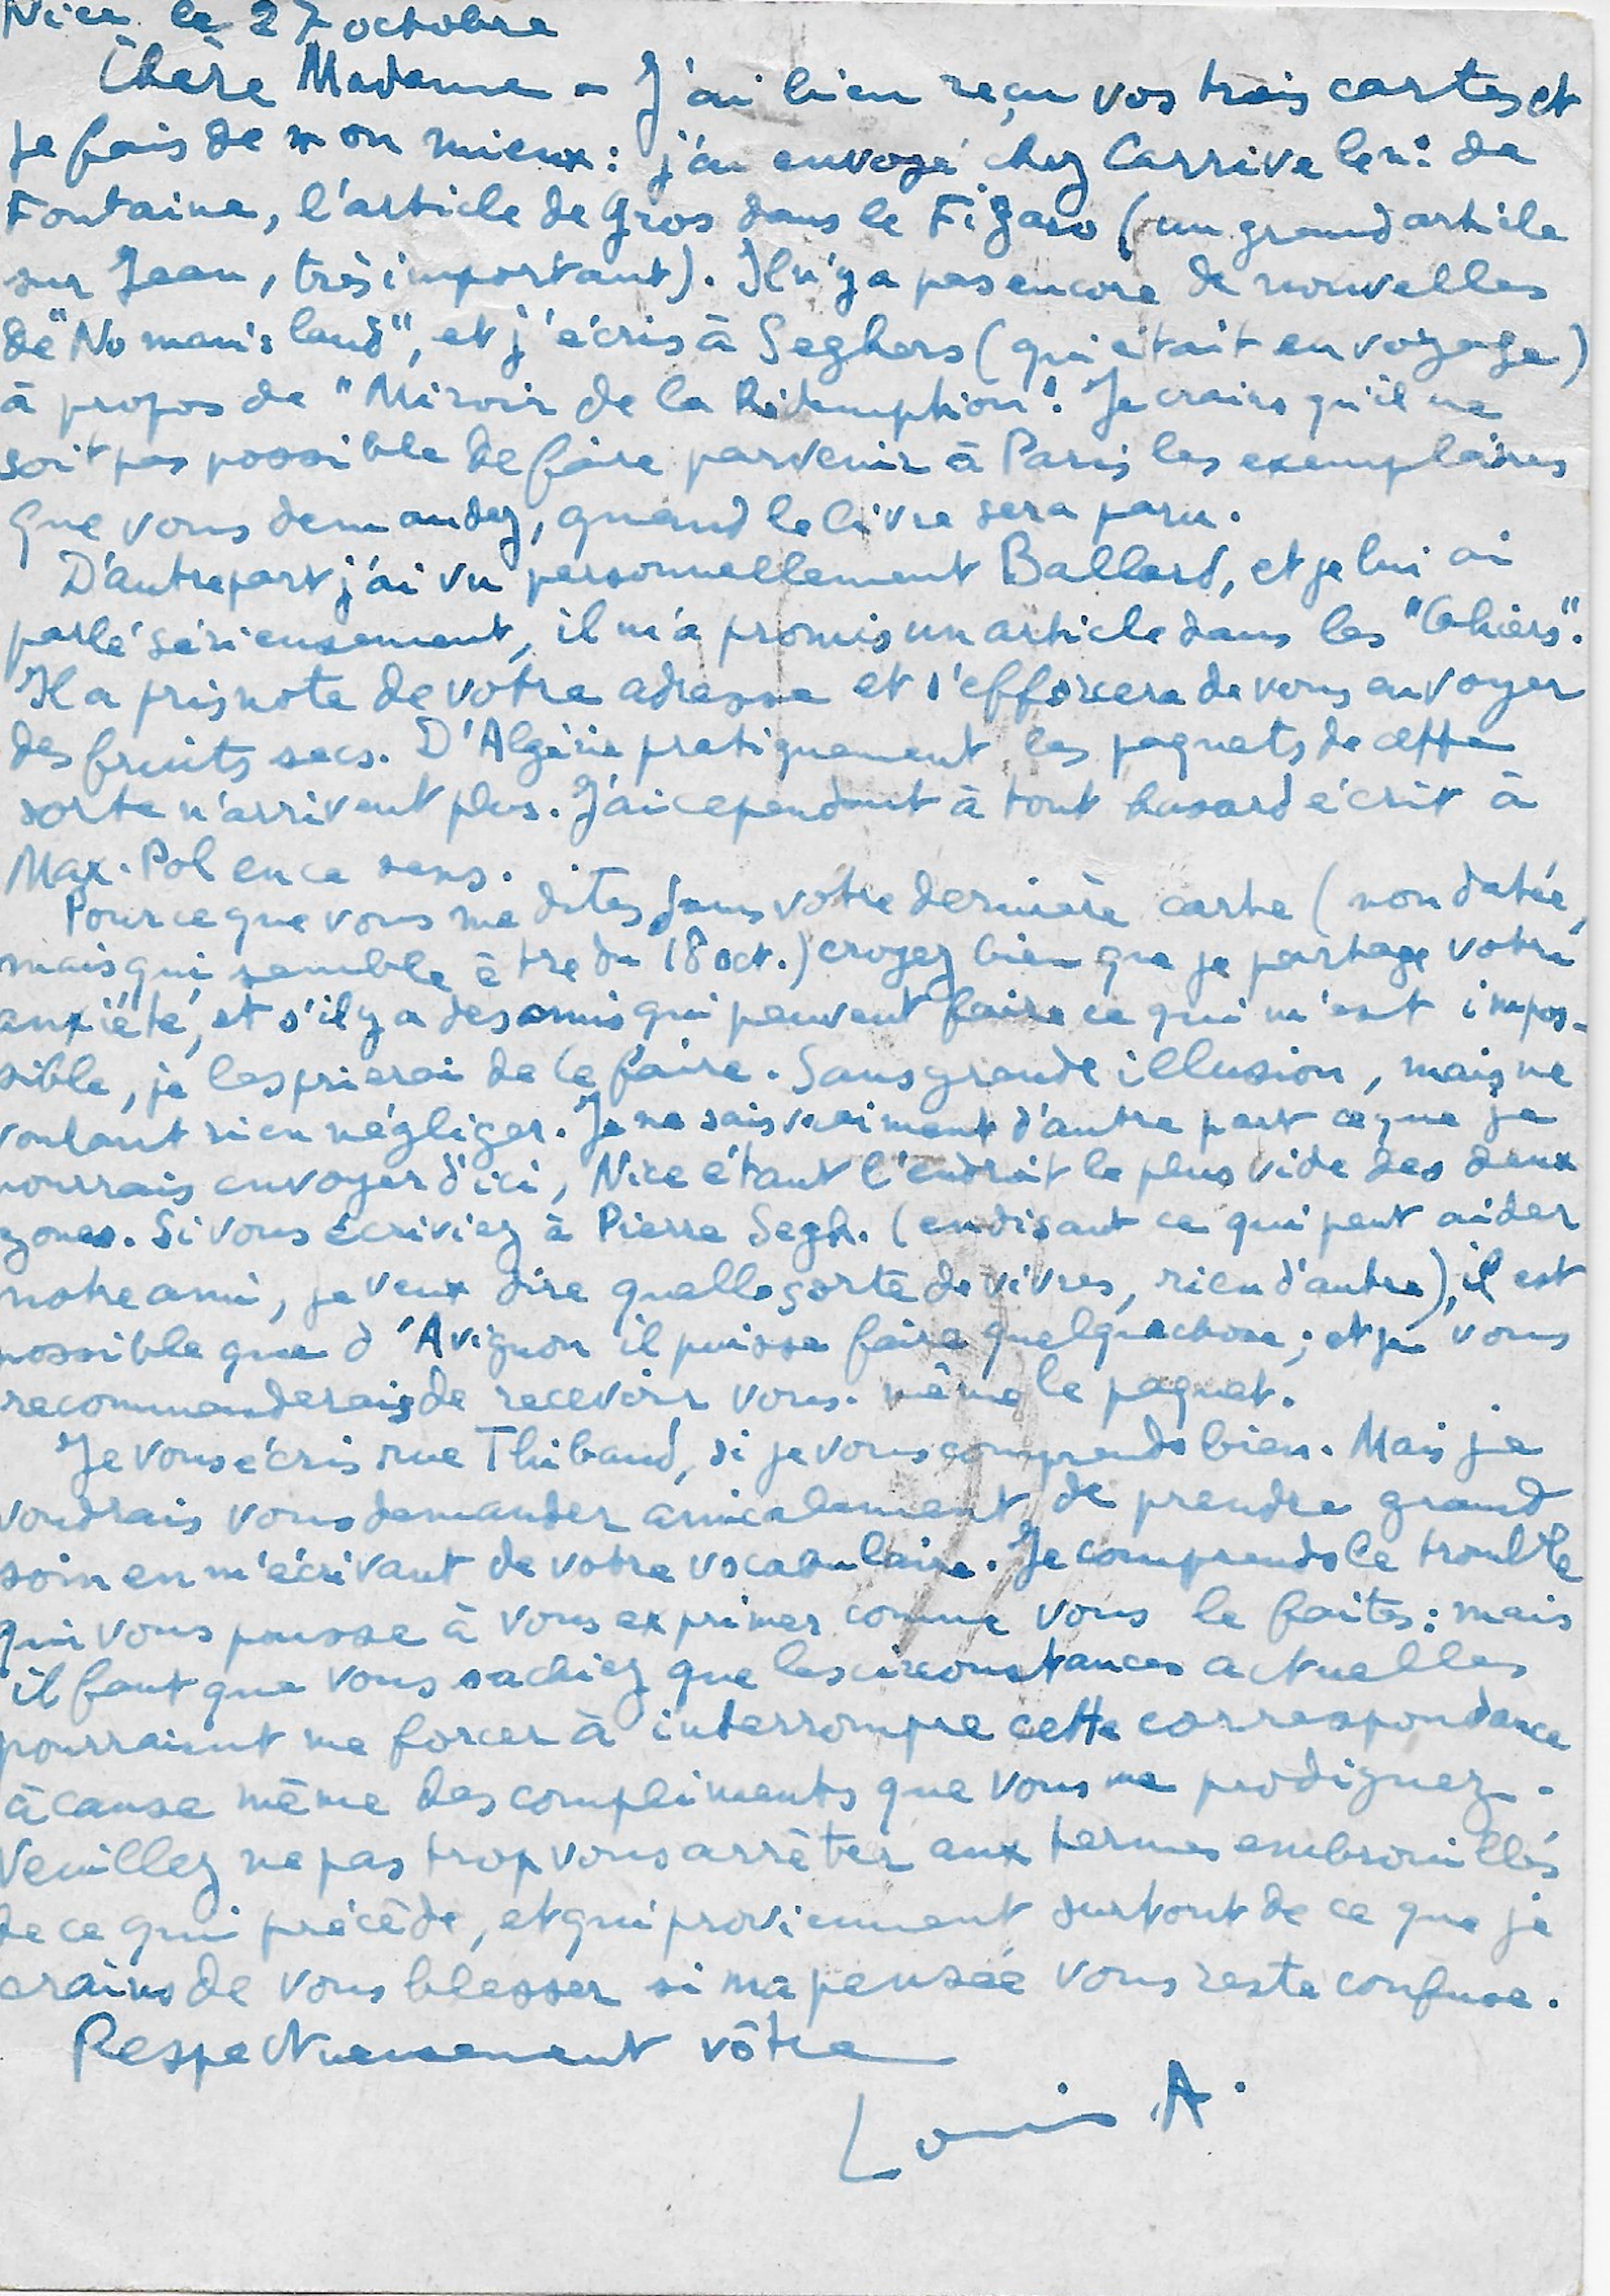 Nice le 27 octobre
Chère Madame - J'ai bien reçu vos trois cartes et
je fais de mon mieux : j'ai envoyé chez Carrive le n° de
Fontaine, l'article de Gros dans le Figaro (un grand article
sur Jean, très important). Il n'y a pas encore de nouvelles
de "No man's land", et j'écris à Seghers (qui était en voyage)
à propos de "Miroir de la Rédemption". Je crains qu'il ne
soit pas possible de faire parvenir à Paris les exemplaires
que vous demandez, quand le livre sera paru.
D'autre part j'ai vu personnellement Ballard, et je lui ai
parlé sérieusement, il m'a promis un article dans les "Cahiers".
Il a pris note de votre adresse et s'efforcera de vous envoyer
des fruits secs. D'Algérie pratiquement les paquets de cette
sorte n'arrivent plus. J'ai cependant à tout hasard écrit à
Max-Pol en ce sens.
Pour ce que vous me dites dans votre dernière carte (non datée,
mais qui semble être du 18 oct.) croyez bien que je partage votre
anxiété, et s'il y a des amis qui peuvent faire ce qui m'est impos-
sible, je les prierai de le faire. Sans grande illusion, mais ne
voulant rien négliger. Je ne sais vraiment d'autre part ce que je
pourrais envoyer d'ici, Nice étant l'endroit le plus vide des deux
zones. Si vous écriviez à Pierre Segh. (en disant ce qui peut aider
notre ami, je veux dire quelle sorte de vivres, rien d'autre), il est
possible que d'Avignon il puisse faire quelque chose ; et je vous
recommanderais de recevoir vous-même le paquet.
Je vous écris rue Thibaud, si je vous comprends bien. Mais je
voudrais vous demander amicalement de prendre grand
soin en m'écrivant de votre vocabulaire. Je comprends le trouble
qui vous pousse à vous exprimer comme vous le faites : mais
il faut que vous sachiez que les circonstances actuelles
pourraient me forcer à interrompre cette correspondance
à cause même des compliments que vous me prodiguez.
Veuillez ne pas trop vous arrêter aux termes embrouillés
de ce qui précède, et qui proviennent surtout de ce que je
crains de vous blesser si ma pensée vous reste confuse.
Respectueusement vôtre
Louis A.